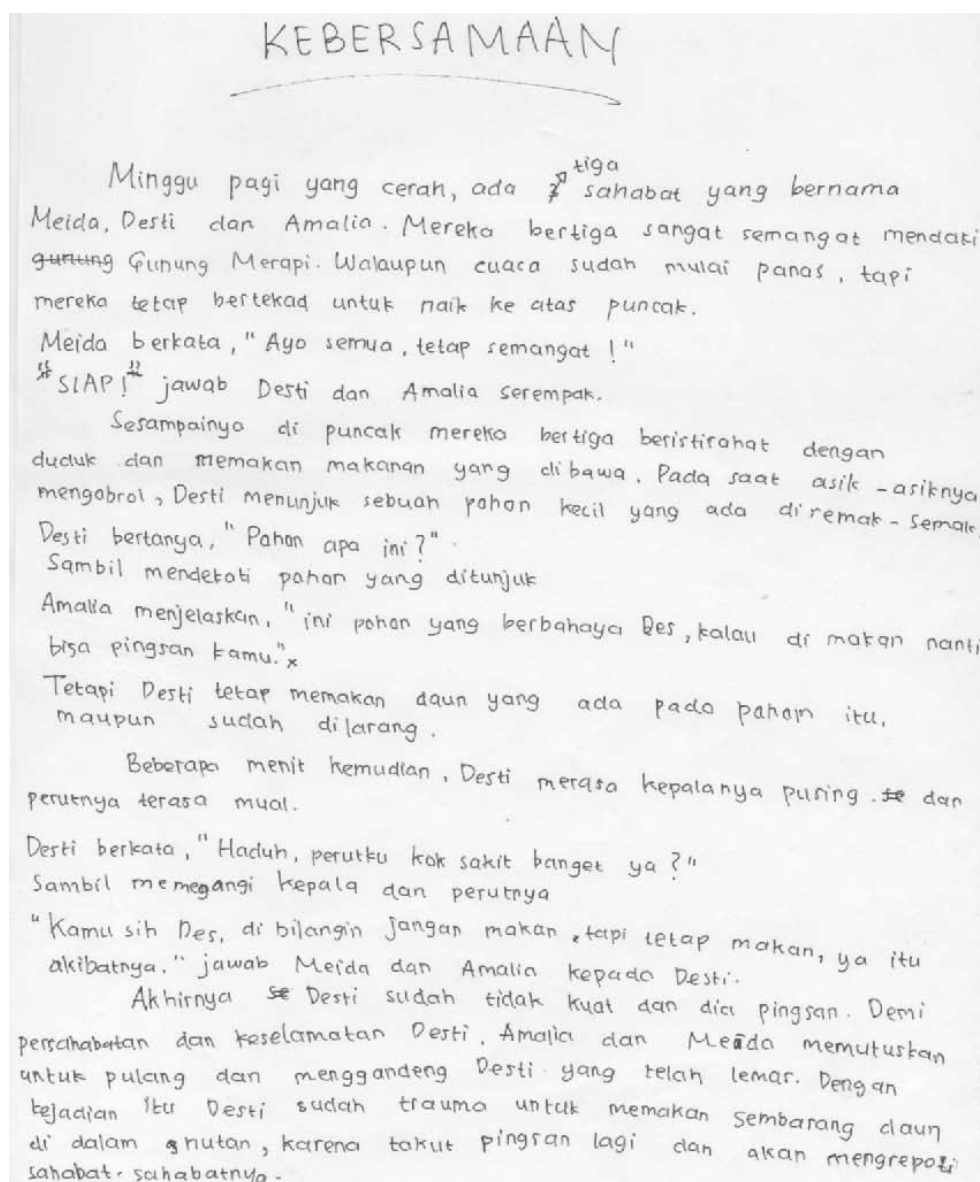 KEBERSAMAAN
Minggu pagi yang cerah, ada tiga sahabat yang bernama
Meida, Desti dan Amalia. Mereka bertiga sangat semangat mendaki
gunung Gunung Merapi. Walaupun cuaca sudah mulai panas, tapi
mereka tetap bertekad untuk naik ke atas puncak.
Meida berkata, "Ayo semua, tetap semangat !"
"SIAP!" jawab Desti dan Amalia serempak.
Sesampainya di puncak mereka bertiga beristirahat dengan
duduk dan memakan makanan yang dibawa. Pada saat asik-asiknya
mengobrol, Desti menunjuk sebuah pohon kecil yang ada disemak-semak.
Desti bertanya, "Pohon apa ini?".
Sambil mendekati pohon yang ditunjuk
Amalia menjelaskan, "ini pohon yang berbahaya Des, kalau di makan nanti
bisa pingsan kamu."
Tetapi Desti tetap memakan daun yang ada pada pohon itu,
maupun sudah dilarang.
Beberapa menit kemudian, Desti merasa kepalanya pusing. se dan
perutnya terasa mual.
Desti berkata, "Haduh, perutku kok sakit banget ya ?"
Sambil memegangi kepala dan perutnya
"Kamu sih Des, di bilangin jangan makan, tapi tetap makan, ya itu
akibatnya." jawab Meida dan Amalia kepada Desti.
Akhirnya se Desti sudah tidak kuat dan dia pingsan. Demi
persahabatan dan keselamatan Desti, Amalia dan Meida memutuskan
untuk pulang dan menggandeng Desti yang telah lemas. Dengan
kejadian itu Desti sudah trauma untuk memakan sembarang daun
di dalam hutan, karena takut pingsan lagi dan akan mengrepoti
sahabat-sahabatnya.